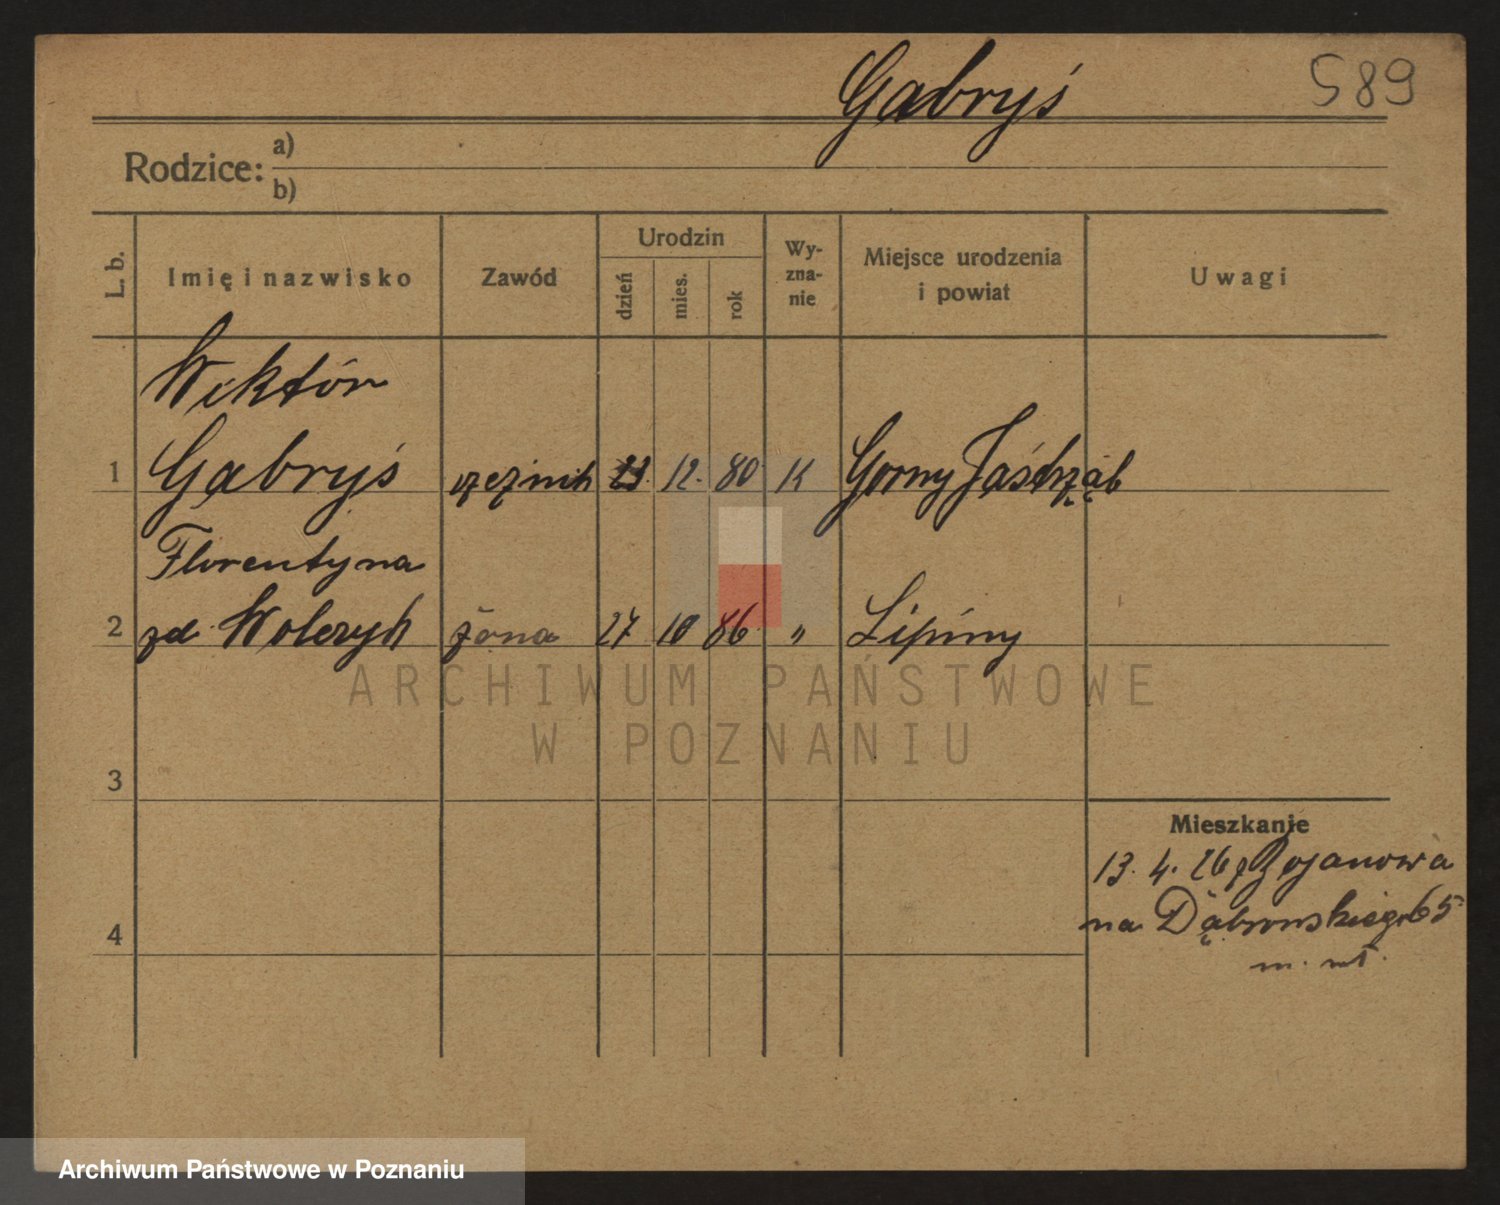 Gabryś
589
Rodzice: a)
b)
L. b. Imię i nazwisko Zawód Urodzin dzień mies. rok Wy-zna-nie Miejsce urodzenia i powiat Uwagi
Wiktór
1 Gabryś 12. 80 K Gorny Jaśtrząb
Florentyna
2 zd Wolczyk żona 27 10 86 " Lipiny
ARCHIWUM PAŃSTWOWE
W POZNANIU
3
Mieszkanie
13. 4. 26 z Bojanowa
4 na Dąbrowskiego 65
Archiwum Państwowe w Poznaniu